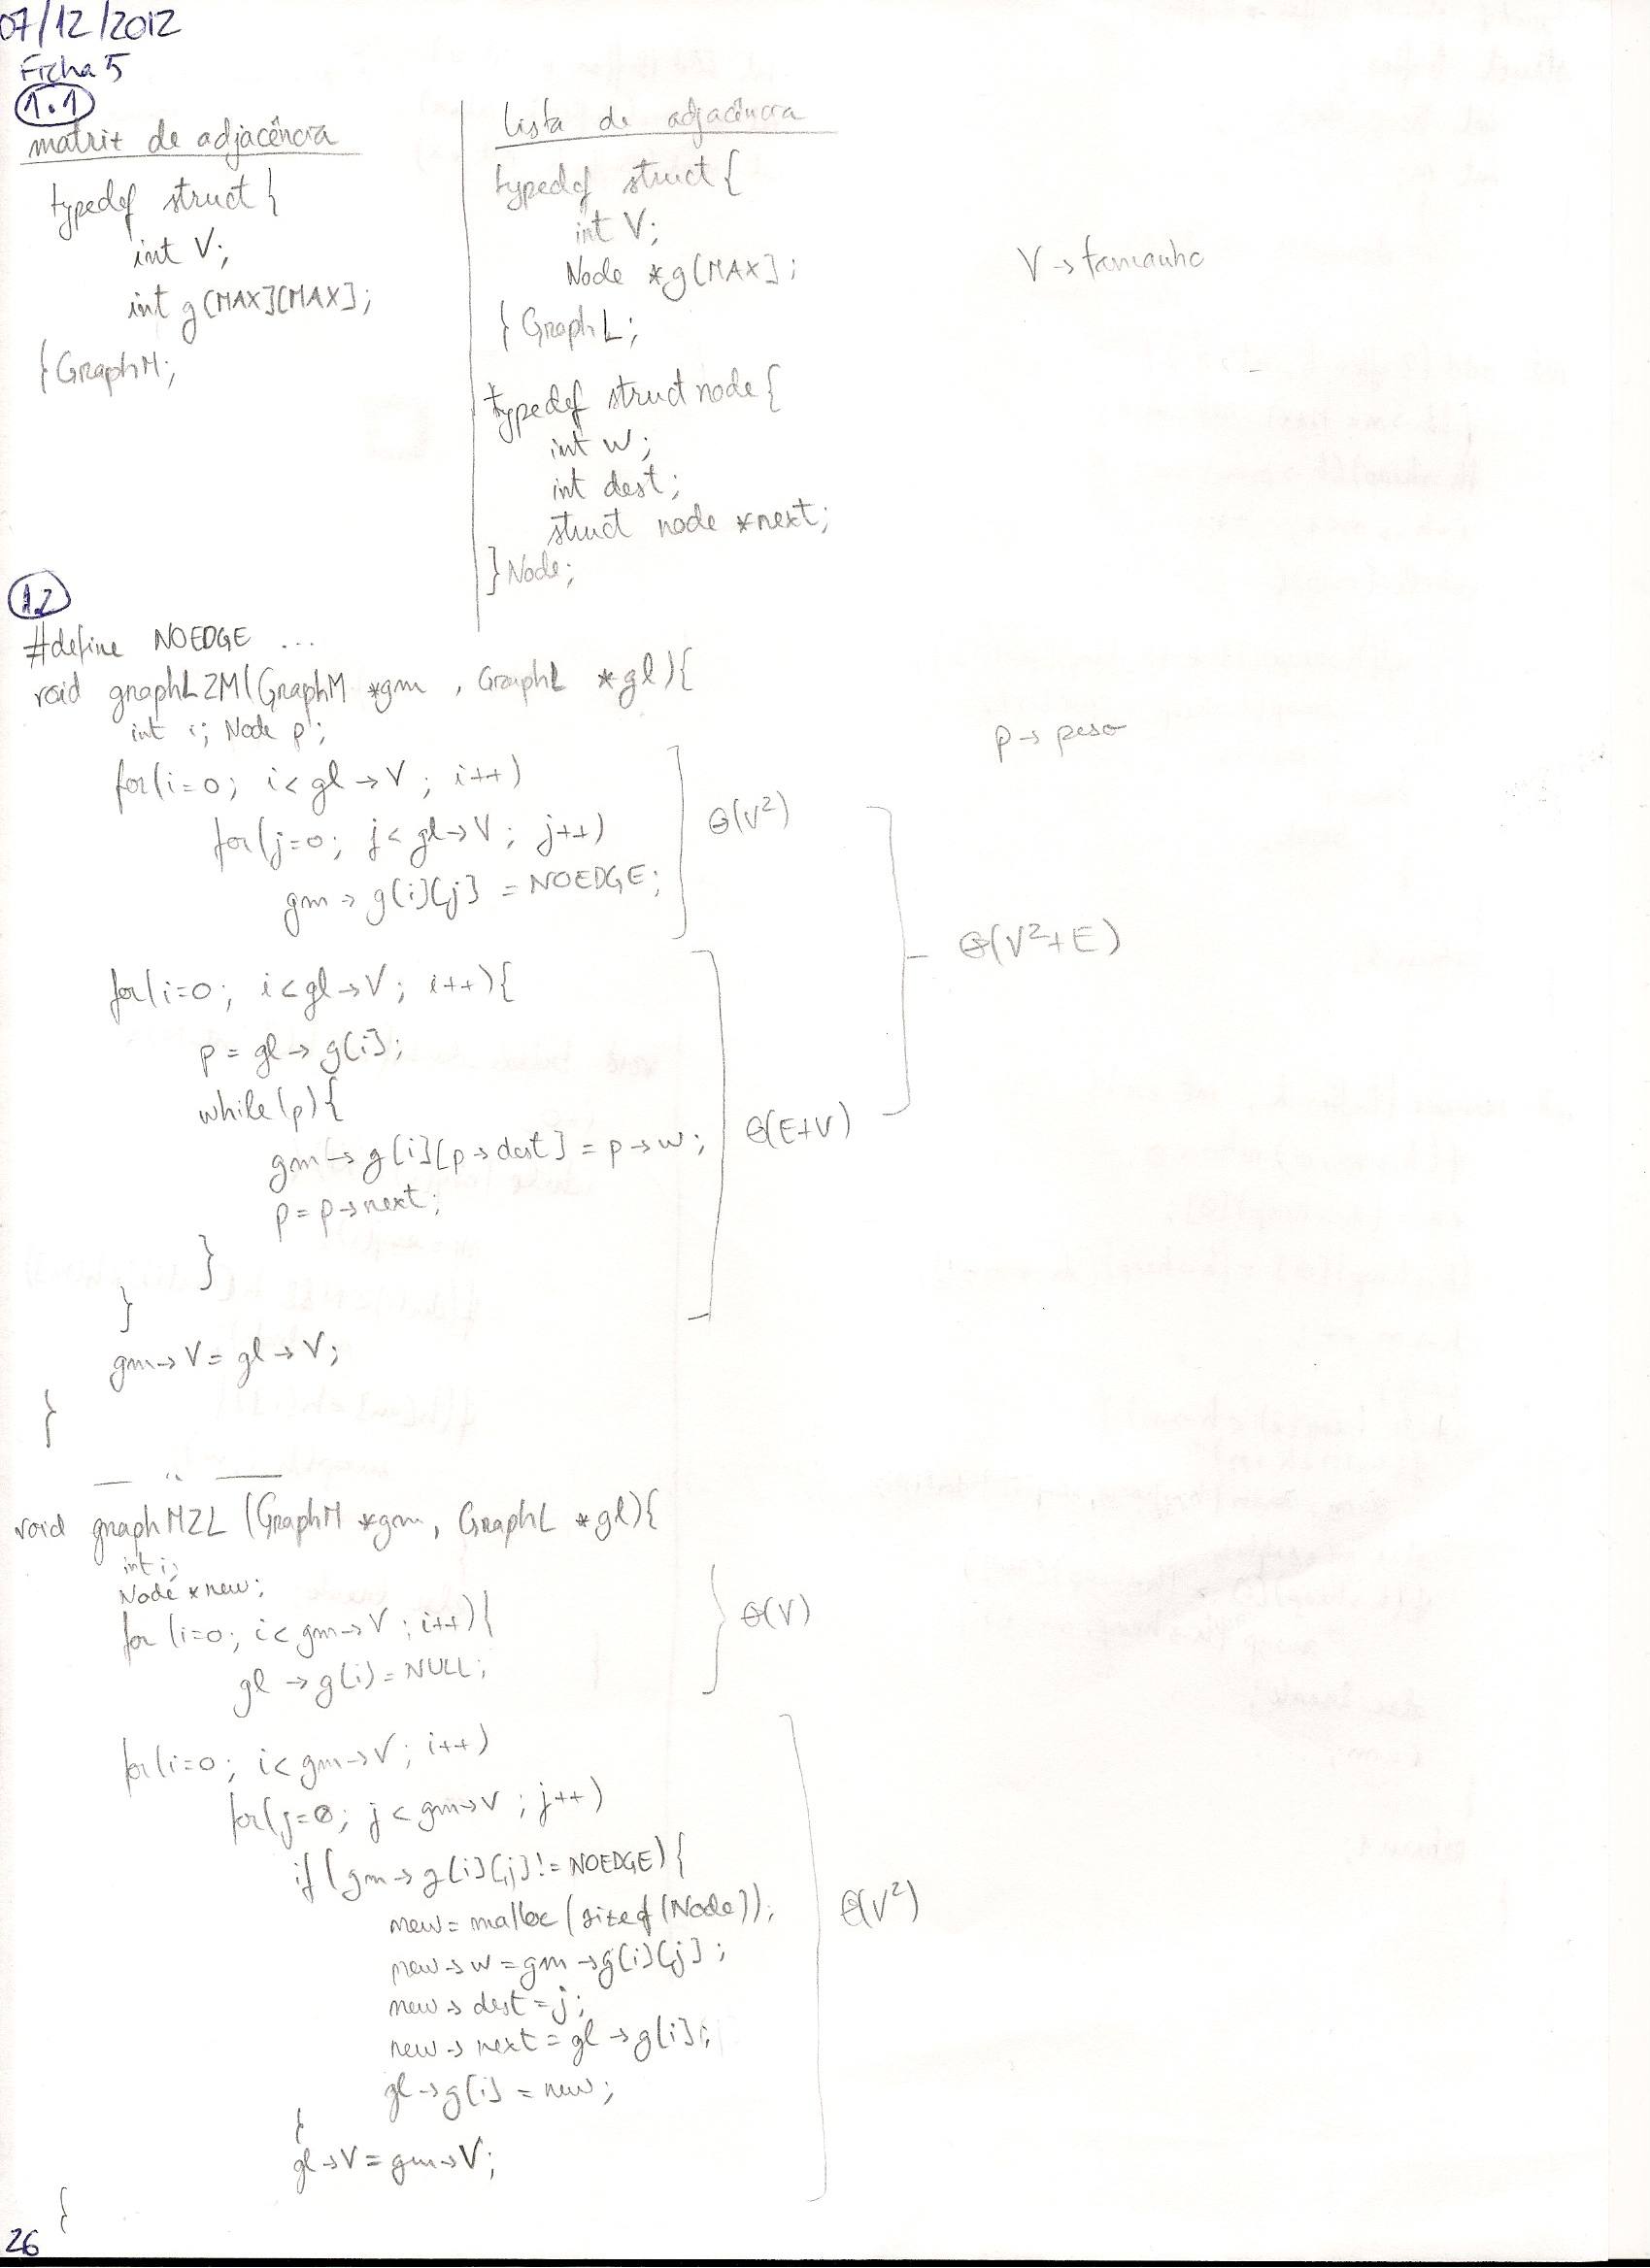 07/12/2012
Ficha 5
1.1
matriz de adjacência
typedef struct {
int V;
int g[MAX][MAX];
} GraphM;
lista de adjacência
typedef struct {
int V;
Node *g[MAX];
} GraphL;
typedef struct node {
int w;
int dest;
struct node *next;
} Node;
V → tamanho
1.2
#define NOEDGE ...
void graphL2M(GraphM *gm , GraphL *gl){
int i; Node p;
p → peso
for(i=0; i< gl→V ; i++)
for(j=0; j< gl→V ; j++)
gm→g[i][j] = NOEDGE;
Θ(V²)
for(i=0; i<gl→V; i++){
p = gl→g[i];
while(p){
gm→g[i][p→dest] = p→w;
p = p→next;
}
}
Θ(E+V)
Θ(V²+E)
gm→V = gl→V;
}
— " —
void graphM2L (GraphM *gm, GraphL *gl){
int i;
Node *new;
for (i=0; i< gm→V ; i++){
gl→g(i) = NULL;
Θ(V)
for(i=0; i< gm→V; i++)
for(j=0; j< gm→V ; j++)
if (gm→g[i][j] != NOEDGE){
new = malloc(sizeof(Node));
new→w = gm→g[i][j] ;
new→dest = j;
new→next = gl→g[i];
gl→g[i] = new;
}
gl→V = gm→V;
Θ(V²)
}
26